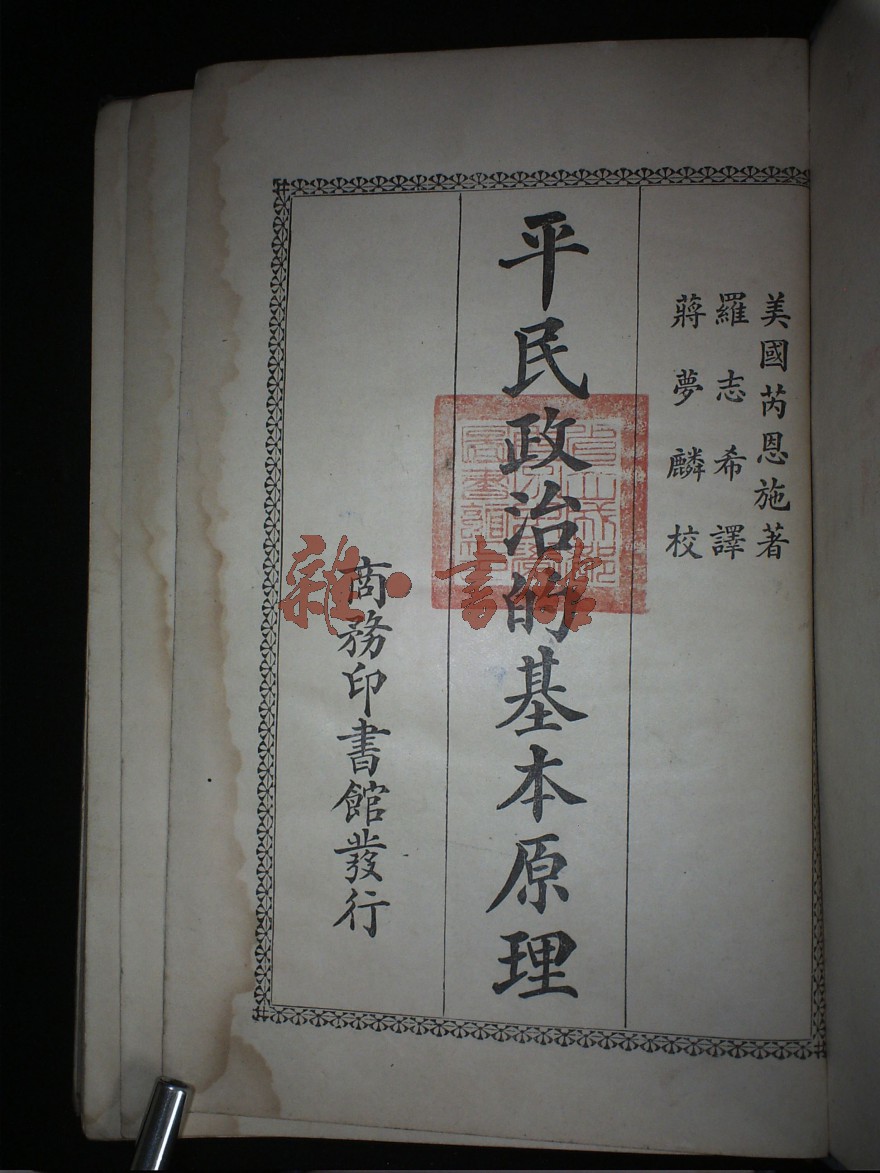 美國芮恩施著
羅志希譯
蔣夢麟校
平民政治的基本原理
商務印書館發行
雜·書館